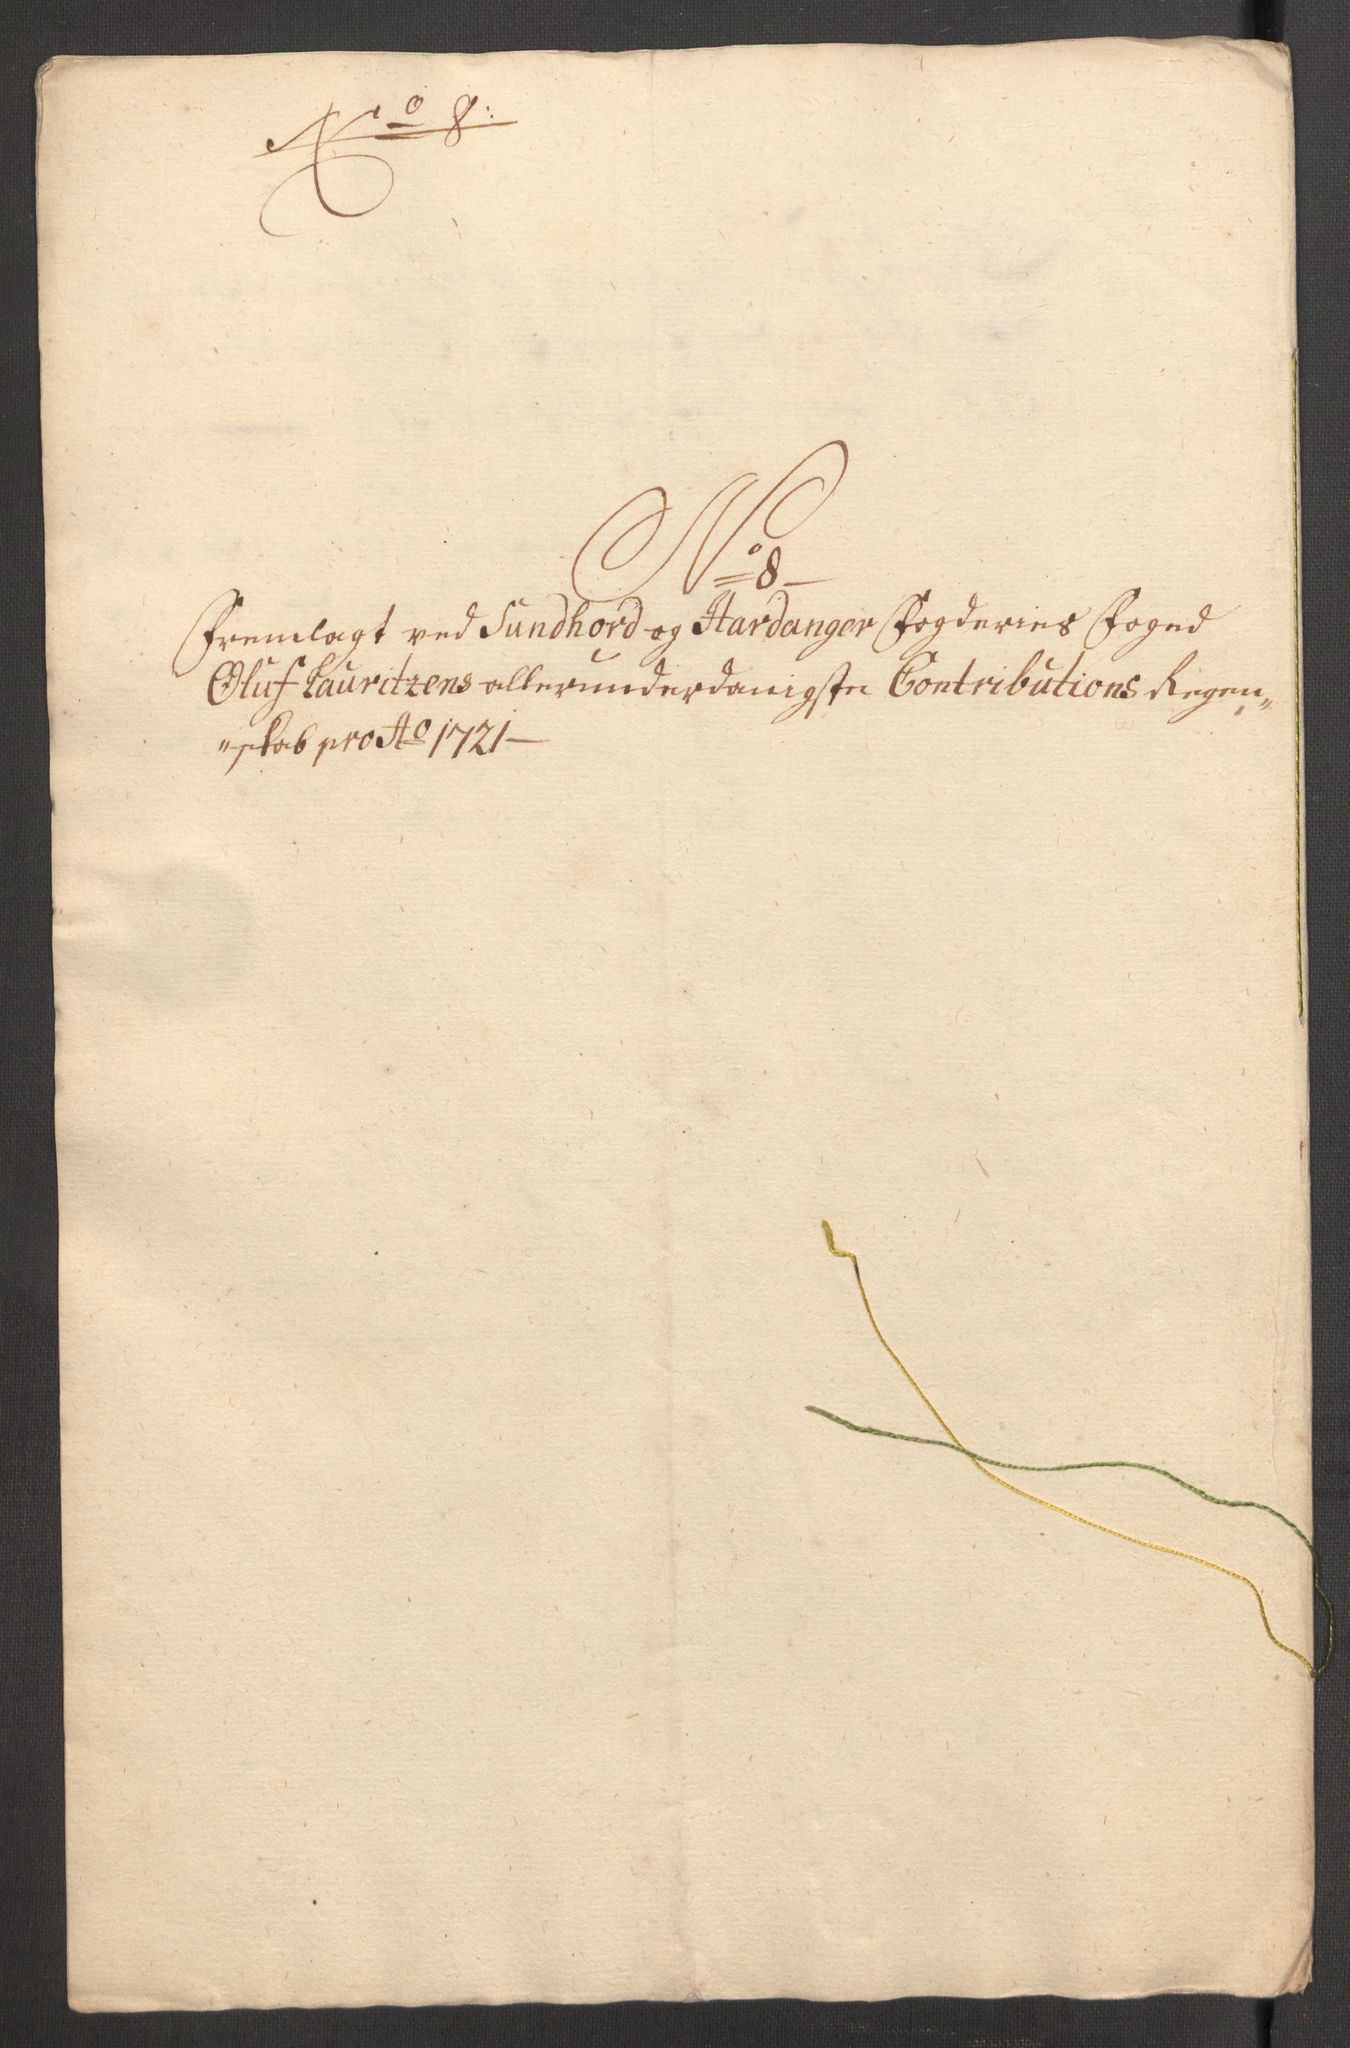 No 8:
No 8
Fremlagt ved Sundhord og Hardanger Fogderies Foged
Oluf Lauritzens allerunderdanigste Contributions Regen„
„skab pro Ao 1721